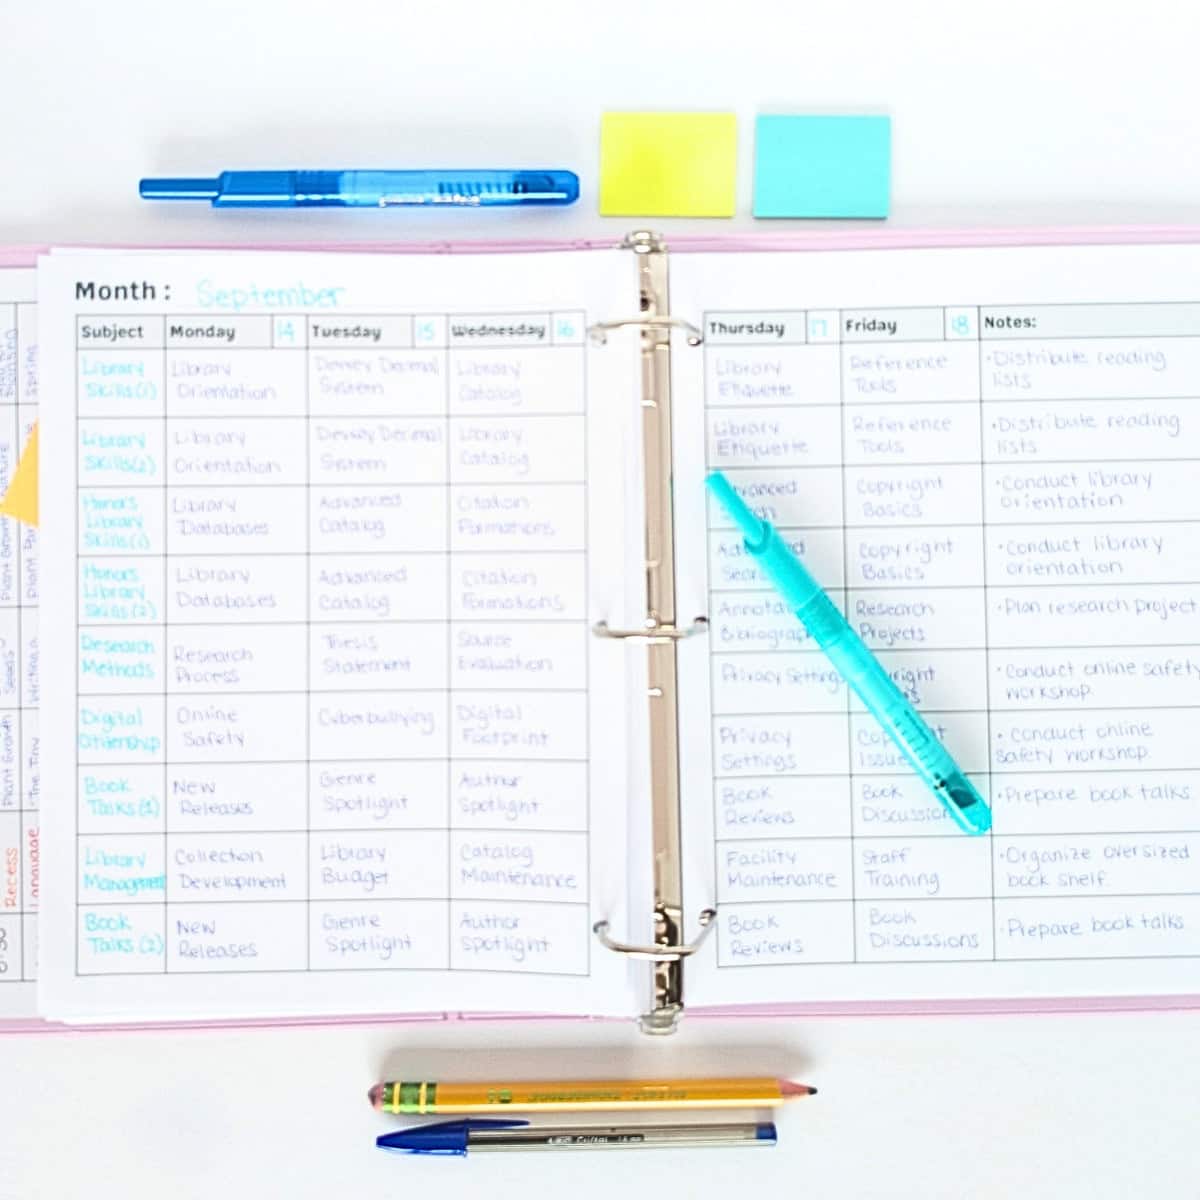 Month: September
Subject Monday 14 Tuesday 15 Wednesday 16 Thursday 17 Friday 18 Notes:
Library Library Dewey Decimal Library Library Reference •Distribute reading
Skills(1) Orientation System Catalog Etiquette Tools lists
Library Library Dewey Decimal Library Library Reference •Distribute reading
Skills(2) Orientation System Catalog Etiquette Tools lists
Honors Library Advanced Citation Copyright •Conduct library
Library Databases Catalog Formations Basics orientation
Skills(1)
Honors Library Advanced Citation Copyright •Conduct library
Library Databases Catalog Formations Basics orientation
Skills(2)
Research Research Thesis Source Research •Plan research project
Methods Process Statement Evaluation Projects
Digital Online Cyberbullying Digital Privacy •Conduct online safety
Citizenship Safety Footprint workshop.
Privacy • Conduct online
Settings safety workshop.
Book New Genre Author Book Book •Prepare book talks.
Talks(1) Releases Spotlight Spotlight Reviews
Library Collection Library Catalog Facility Staff •Organize oversized
Development Budget Maintenance Maintenance Training book shelf.
Book New Genre Author Book Book •Prepare book talks.
Talks (2) Releases Spotlight Spotlight Reviews Discussions
Recess
Language
Plant Growth
Cristal